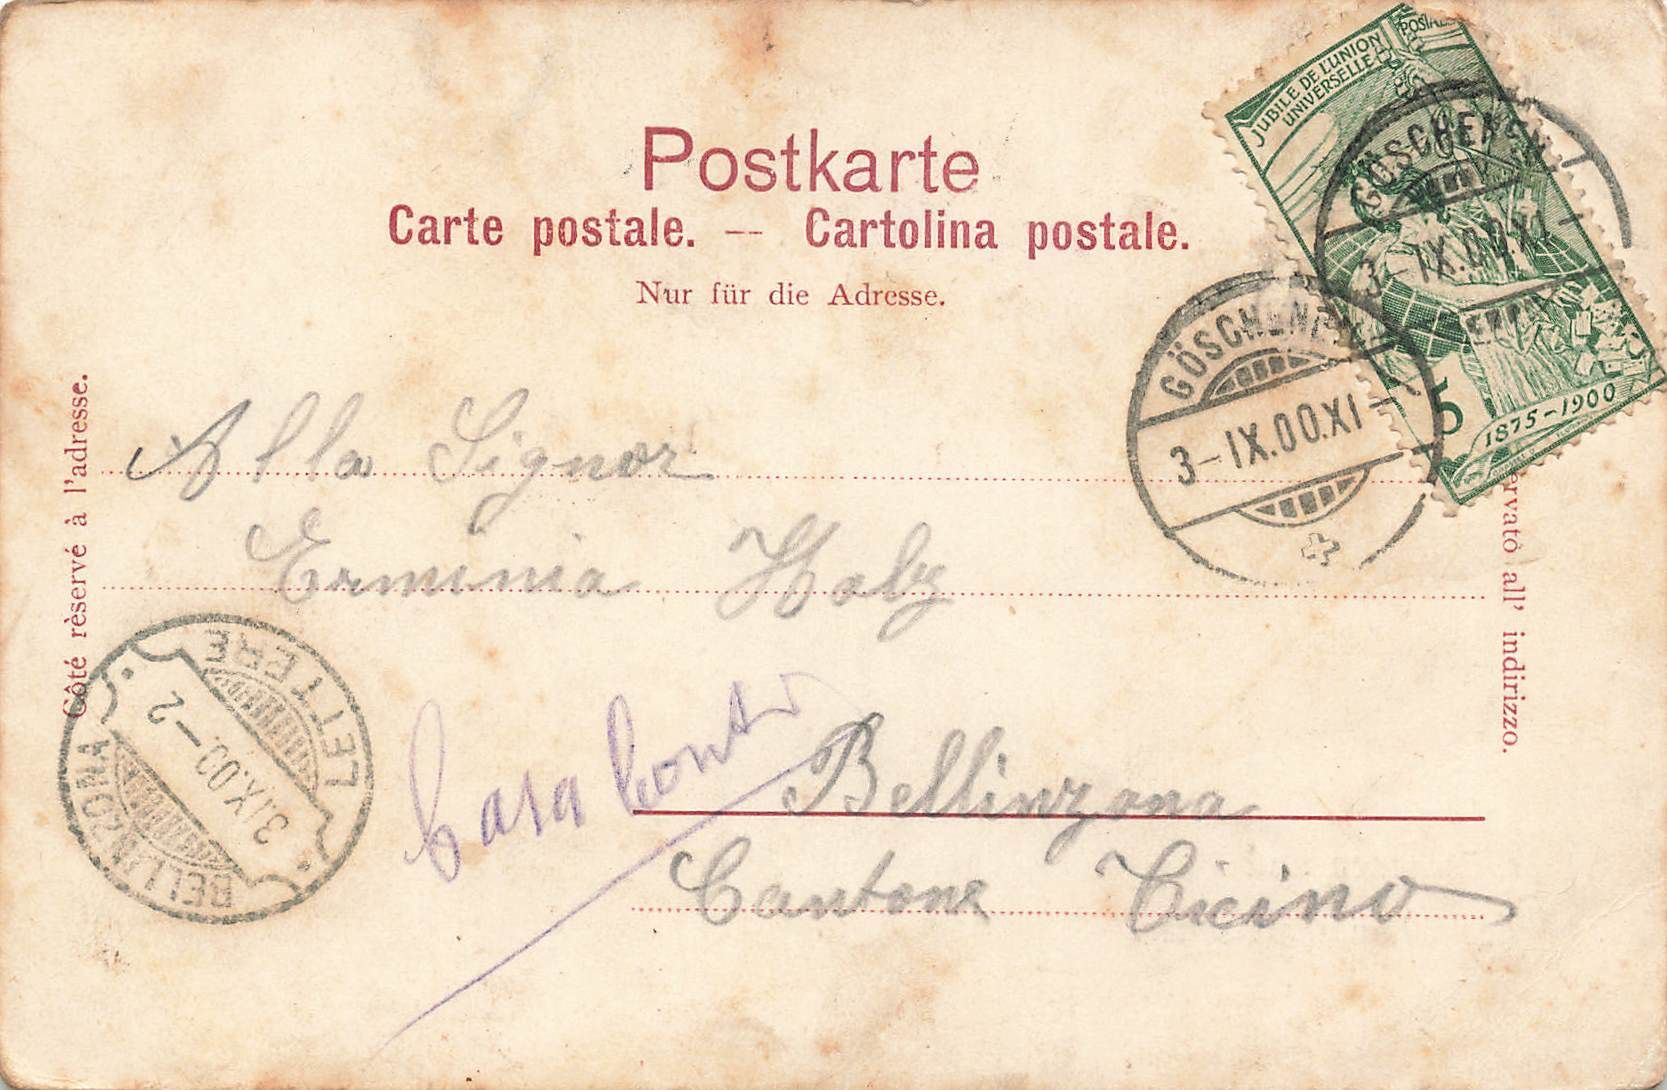 Postkarte
Carte postale. — Cartolina postale.
Nur für die Adresse.
JUBILE DE L'UNION
POSTALE
UNIVERSELLE
5
1875-1900
GÖSCHENEN
3-IX.00.XI
GÖSCHENEN
3-IX.00.XI
Côté rèservé à l'adresse.
ervatò all' indirizzo.
Alla Signor
Erminia Holz
Casa Conti
Bellinzona
Cantone Ticino
BELLINZONA
3.IX.00.-2
LETTERE